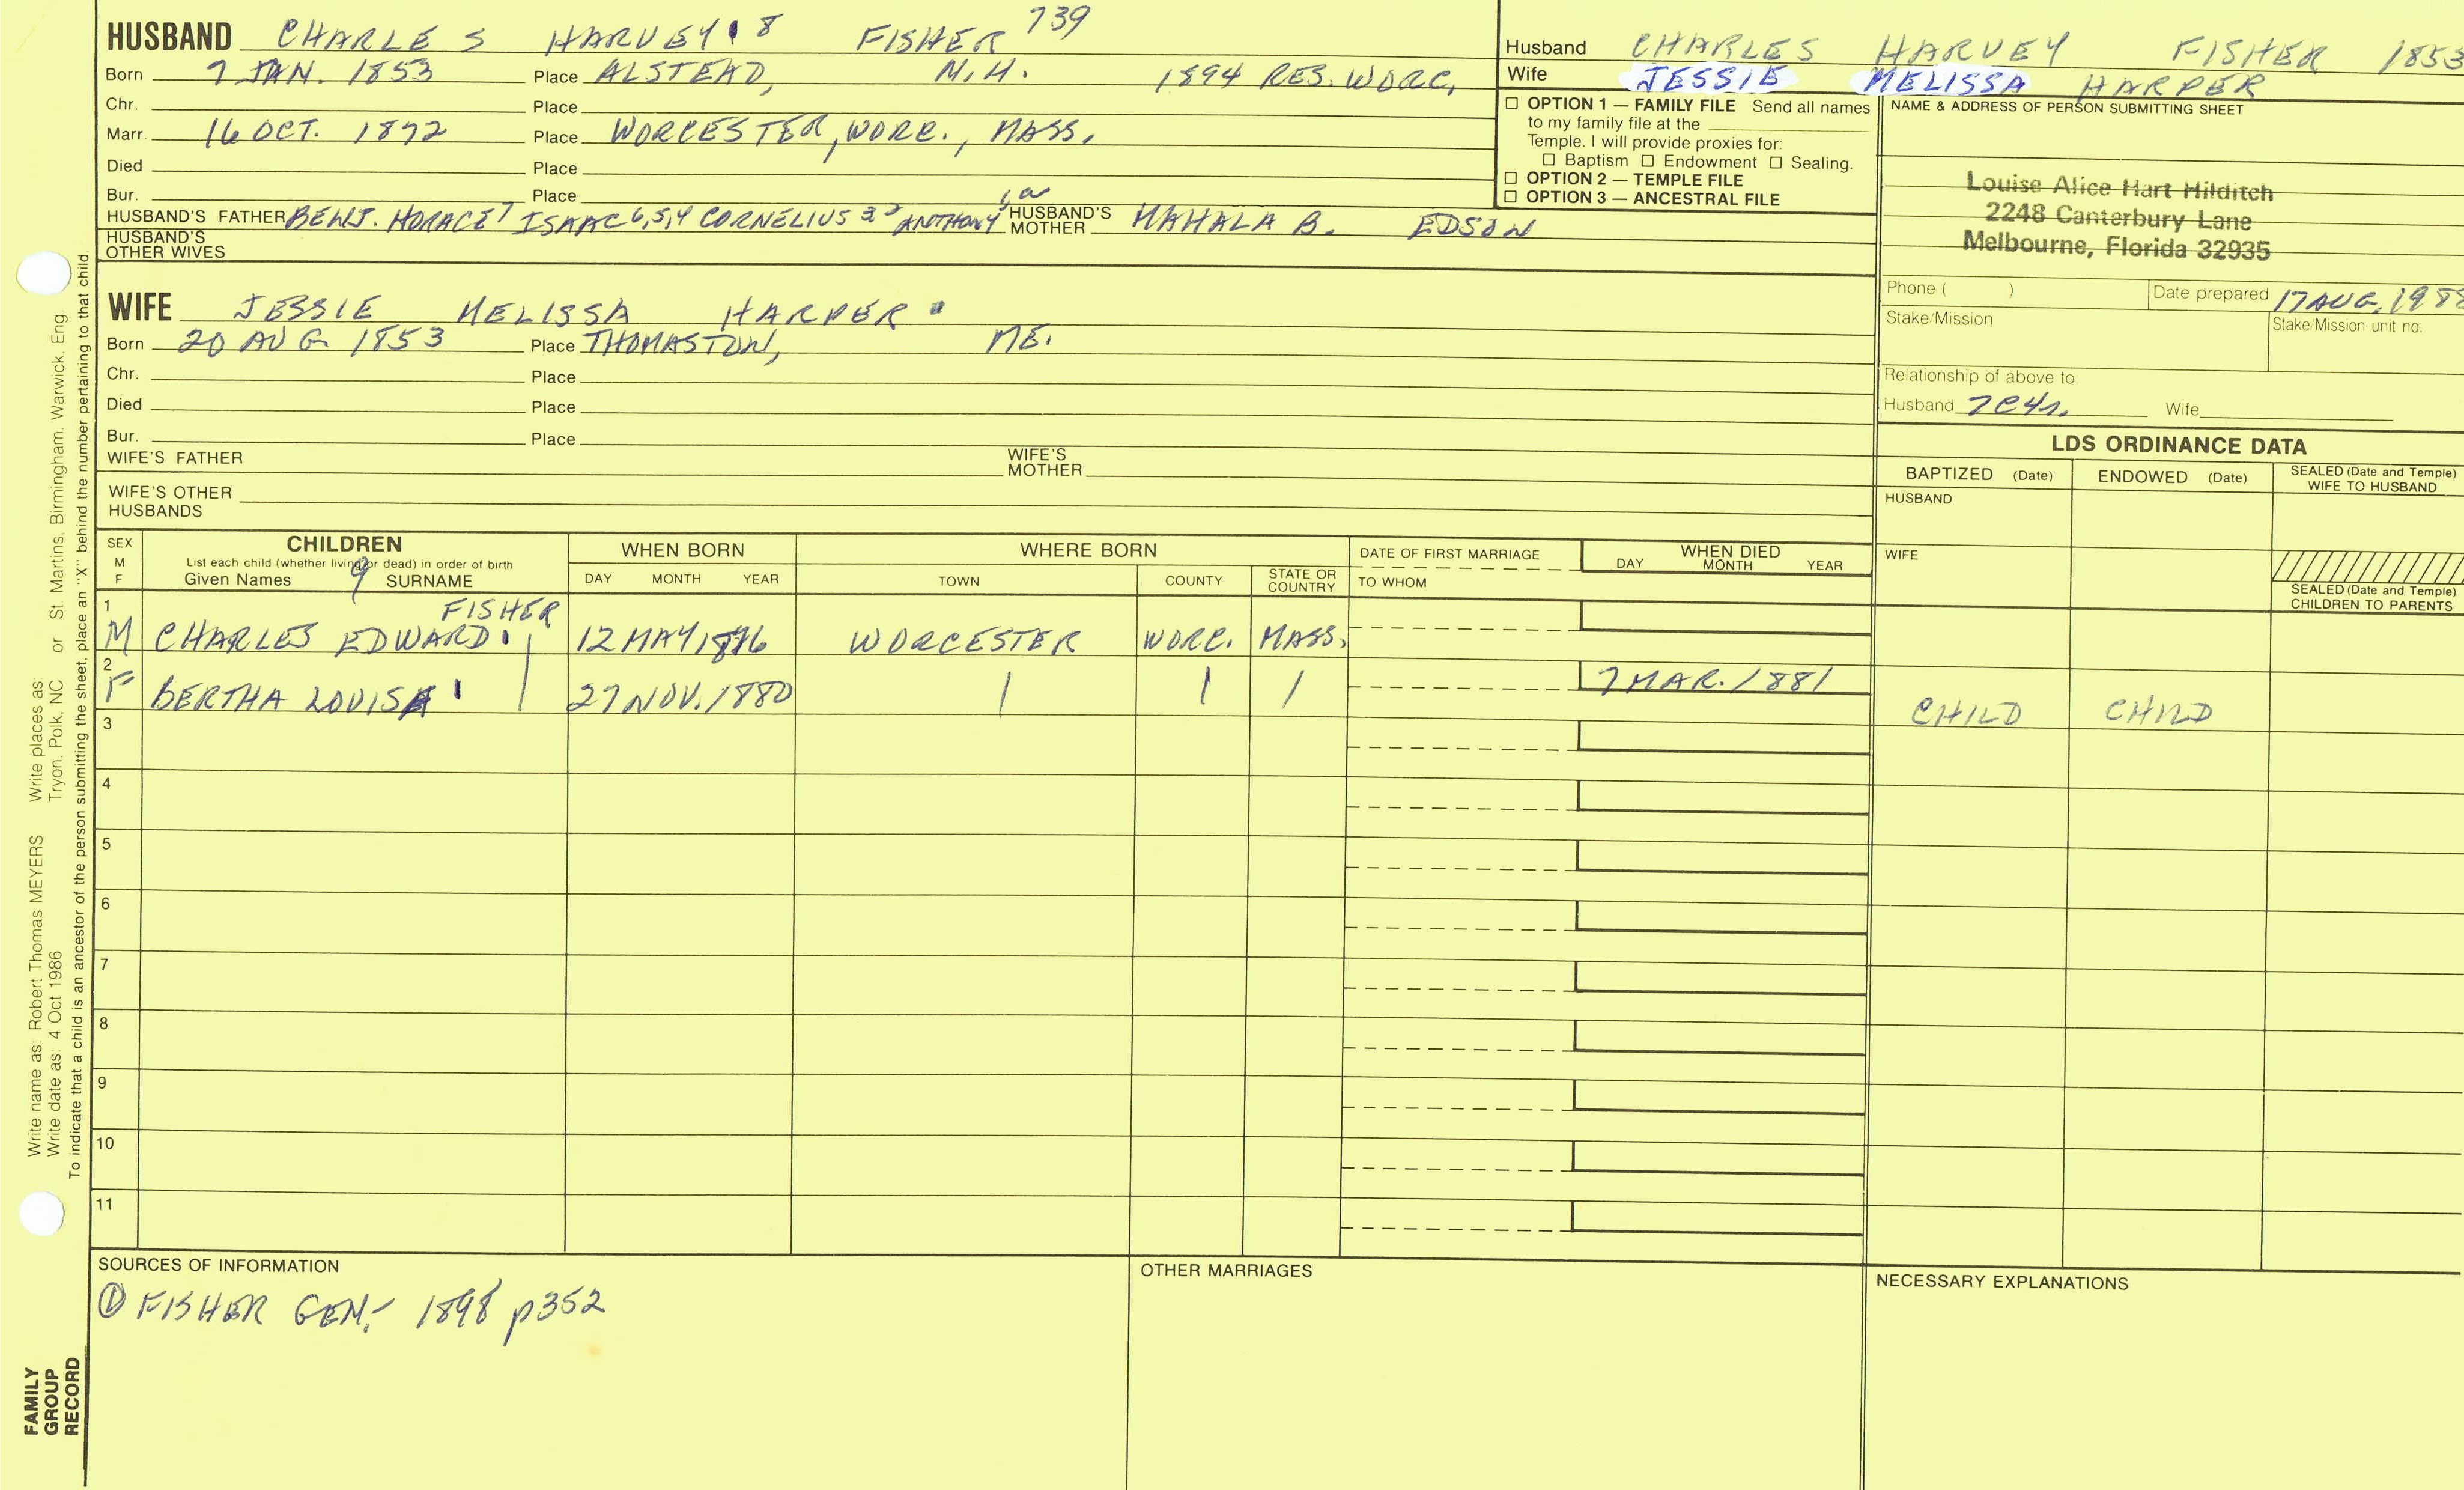 HUSBAND CHARLES HARVEY 8 FISHER 739
Born 7 JAN. 1853 Place ALSTEAD, N.H. 1894 RES. WORC.
Chr. Place
Marr. 16 OCT. 1872 Place WORCESTER, WORC., MASS.
Died Place
Bur. Place
HUSBAND'S FATHER BENJ. HORACE 7 ISAAC 6,5,4 CORNELIUS 3 2 ANTHONY 1, HUSBAND'S MOTHER MAHALA B. EDSON
HUSBAND'S OTHER WIVES
WIFE JESSIE MELISSA HARPER
Born 20 AUG 1853 Place THOMASTON, ME.
Chr. Place
Died Place
Bur. Place
WIFE'S FATHER WIFE'S MOTHER
WIFE'S OTHER HUSBANDS
Husband CHARLES HARVEY FISHER 1853
Wife JESSIE MELISSA HARPER
OPTION 1 — FAMILY FILE Send all names
to my family file at the
Temple. I will provide proxies for:
Baptism Endowment Sealing.
OPTION 2 — TEMPLE FILE
OPTION 3 — ANCESTRAL FILE
NAME & ADDRESS OF PERSON SUBMITTING SHEET
Louise Alice Hart Hilditch
2248 Canterbury Lane
Melbourne, Florida 32935
Phone ( ) Date prepared 17 AUG, 1988
Stake/Mission Stake/Mission unit no.
Relationship of above to
Husband 7C4r. Wife
LDS ORDINANCE DATA
BAPTIZED (Date) ENDOWED (Date) SEALED (Date and Temple) WIFE TO HUSBAND
HUSBAND
WIFE
SEALED (Date and Temple) CHILDREN TO PARENTS
SEX M F
CHILDREN
List each child (whether living or dead) in order of birth
Given Names 9 SURNAME
WHEN BORN
DAY MONTH YEAR
WHERE BORN
TOWN COUNTY STATE OR COUNTRY
DATE OF FIRST MARRIAGE
TO WHOM
WHEN DIED
DAY MONTH YEAR
1 FISHER
M CHARLES EDWARD 12 MAY 1876 WORCESTER WORC. MASS.
2
F BERTHA LOUISA 27 NOV. 1880 7 MAR. 1881 CHILD CHILD
3
4
5
6
7
8
9
10
11
SOURCES OF INFORMATION
① FISHER GEN.- 1898 p352
OTHER MARRIAGES
NECESSARY EXPLANATIONS
Write name as: Robert Thomas MEYERS Write places as:
Write date as: 4 Oct 1986 Tryon, Polk, NC or St. Martins, Birmingham, Warwick, Eng
To indicate that a child is an ancestor of the person submitting the sheet, place an "X" behind the number pertaining to that child
FAMILY
GROUP
RECORD